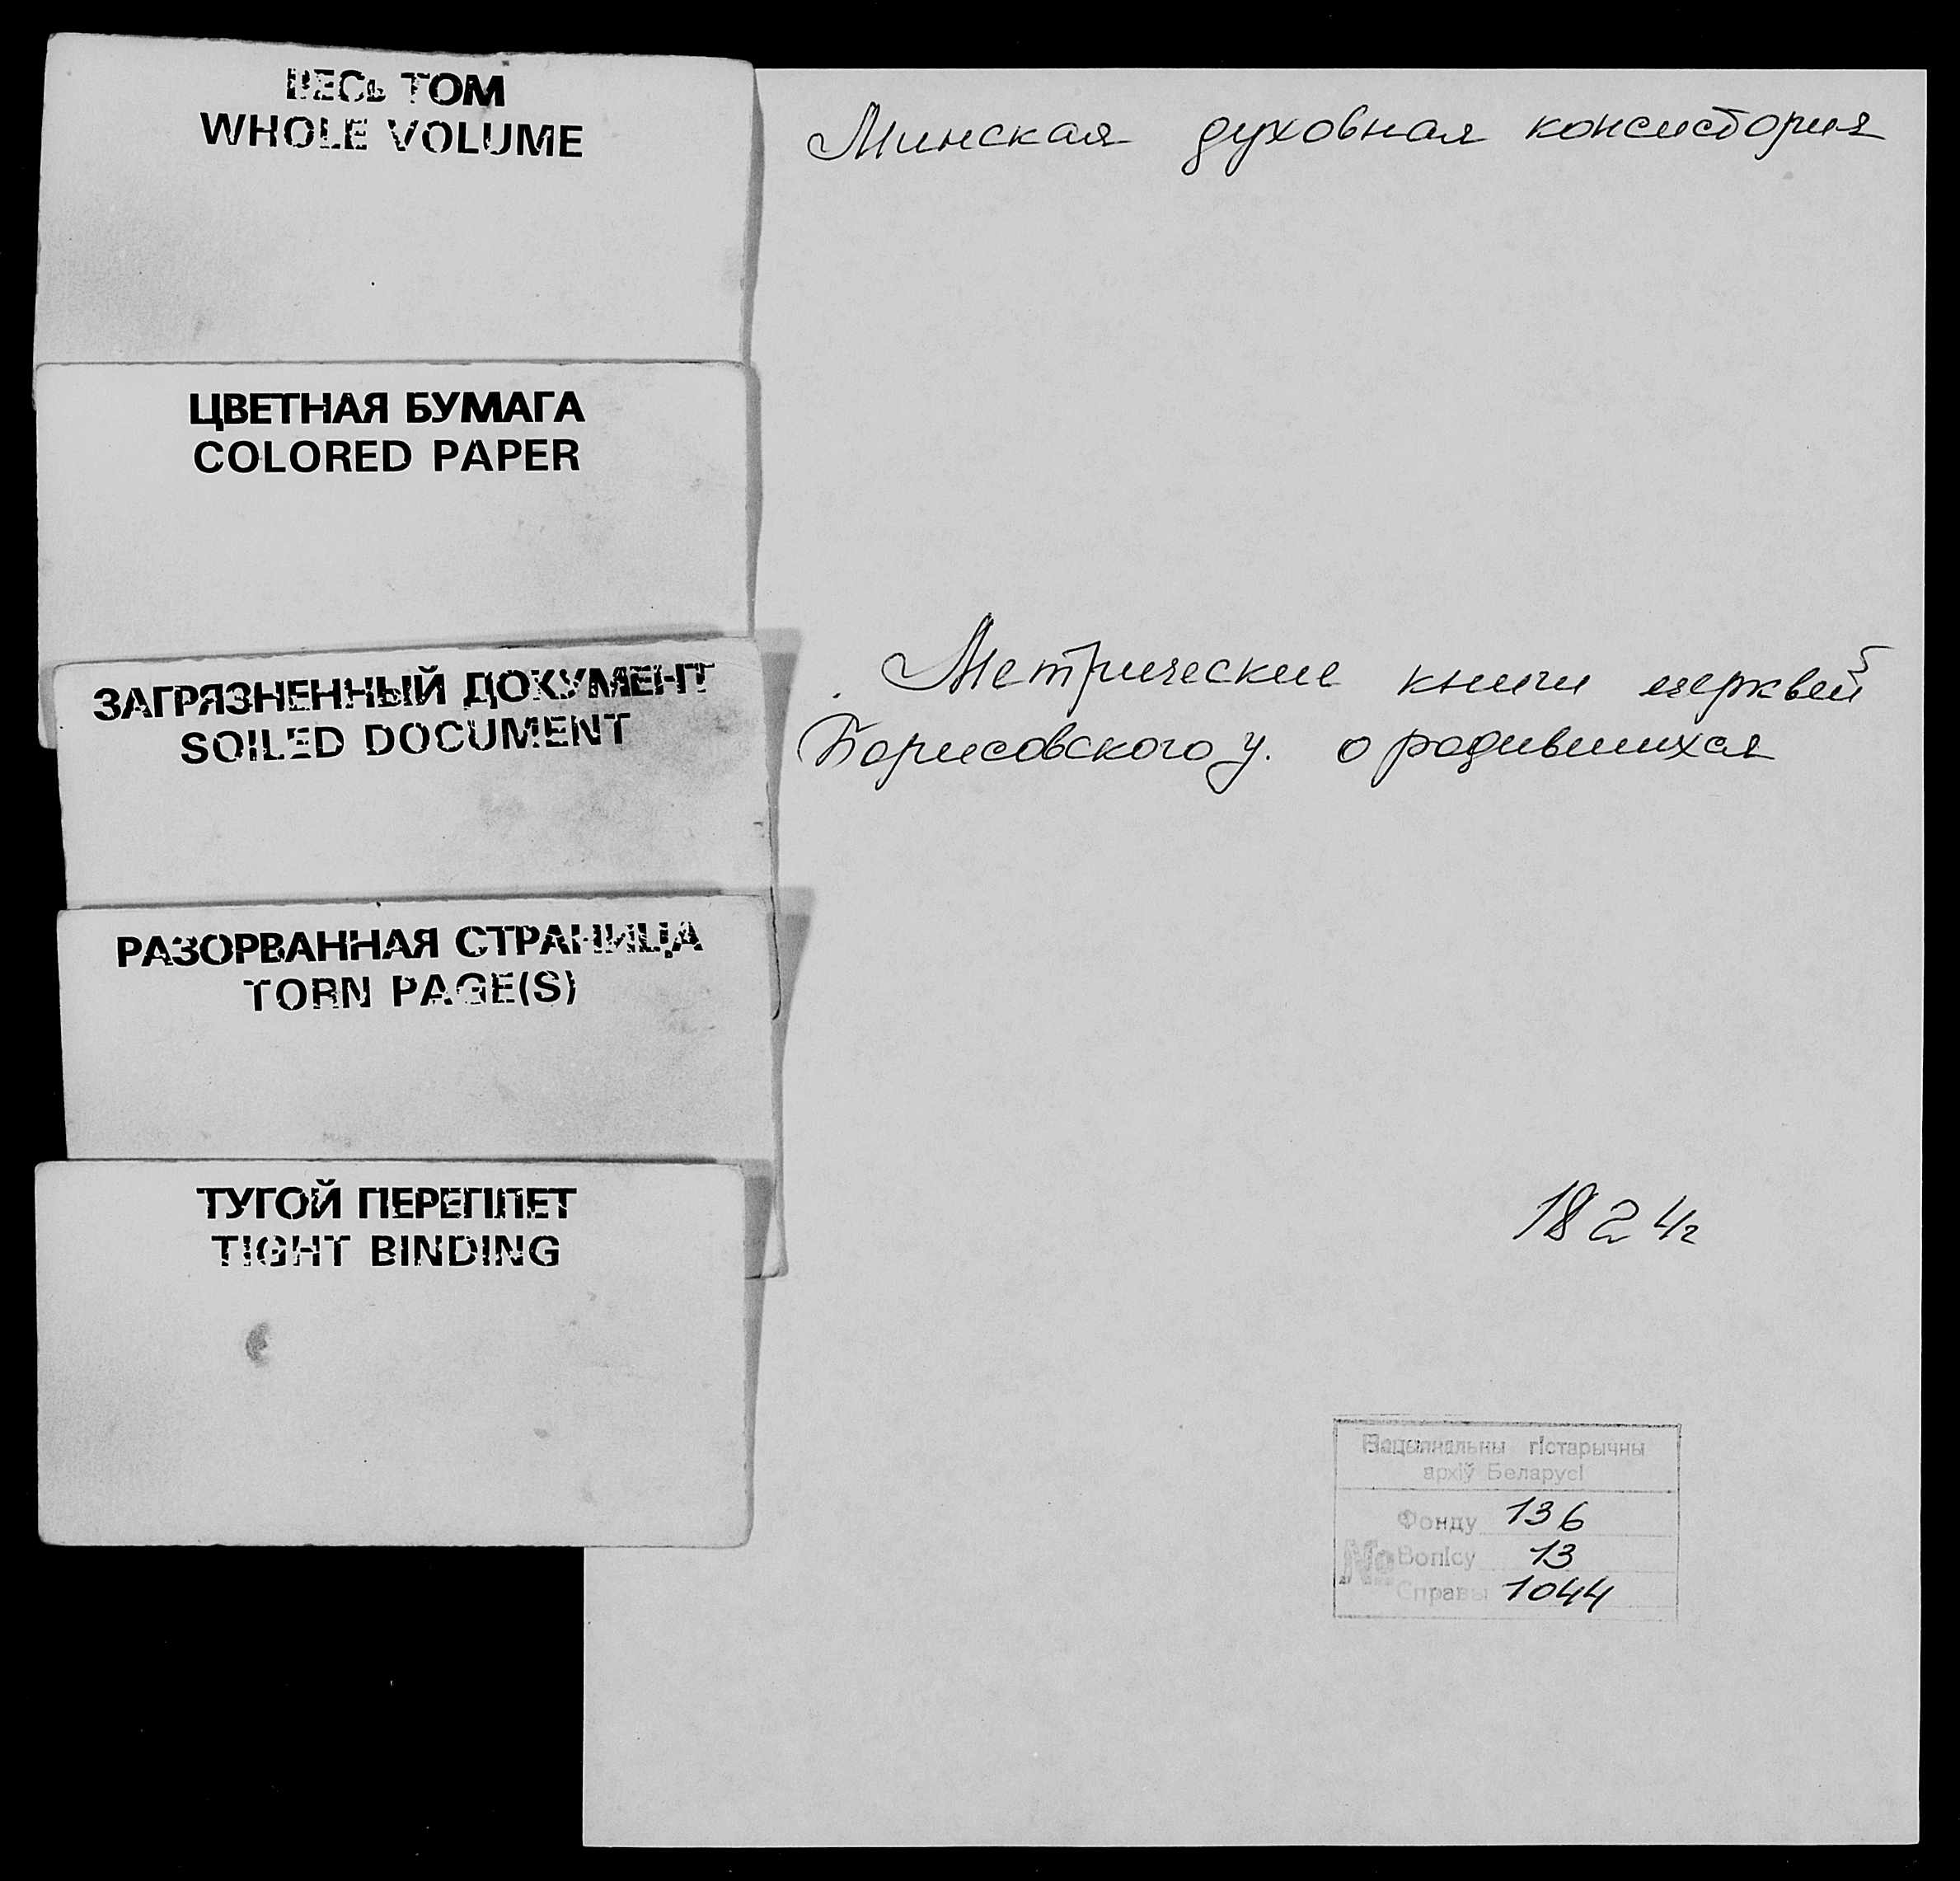 ВЕСЬ ТОМ
WHOLE VOLUME
ЦВЕТНАЯ БУМАГА
COLORED PAPER
ЗАГРЯЗНЕННЫЙ ДОКУМЕНТ
SOILED DOCUMENT
РАЗОРВАННАЯ СТРАНИЦА
TORN PAGE(S)
ТУГОЙ ПЕРЕПЛЕТ
TIGHT BINDING
Минская духовная консистория
Метрические книги церквей
Борисовского у. о родившихся
1824г
Нацыянальны гістарычны
архіў Беларусі
Фонду 136
№ Вопісу 13
Справы 1044